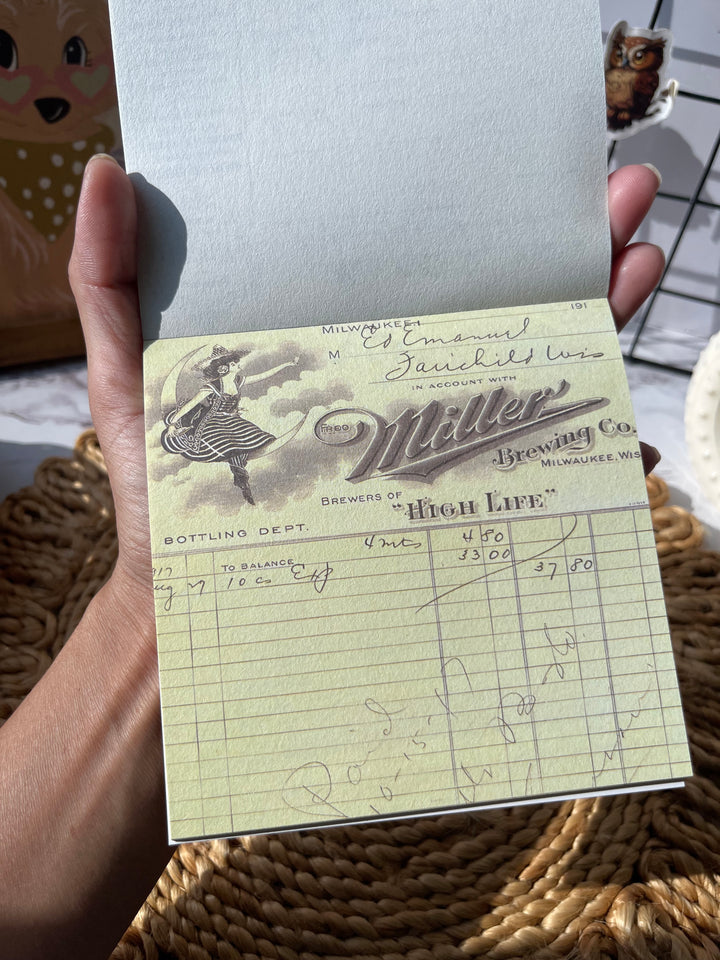 191
MILWAUKEE,
M Ed Emanuel
Fairchild Wis
IN ACCOUNT WITH
FRED Miller
Brewing Co.
MILWAUKEE, WIS
BREWERS OF "HIGH LIFE"
BOTTLING DEPT.
TO BALANCE 4 80
10 cs 33 00 37 80
Paid
10-15-17